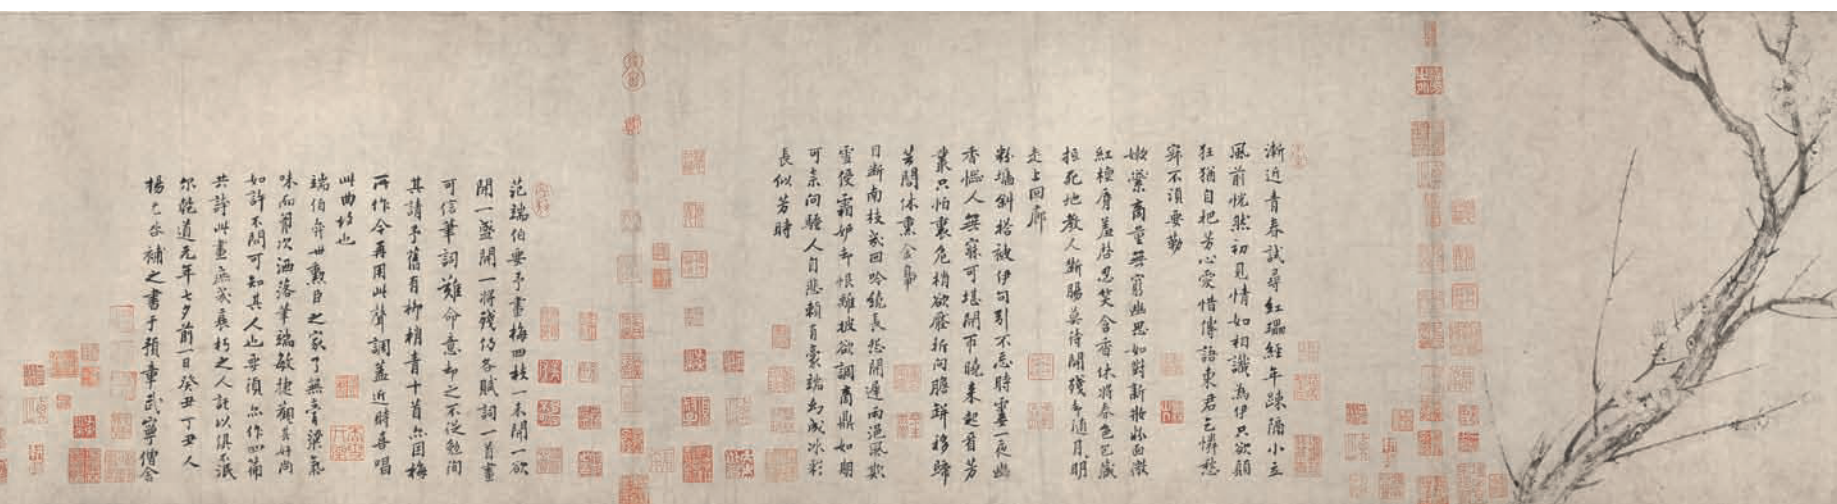 漸近青春試尋紅瓃經年疎隔小立
風前恍然初見情如相識為伊只欲顛
狂猶自把芳心愛惜傳語東君乞憐愁
寂不須要勒
嫩蘂商量無窮幽思如對新粧粉面微
紅檀唇羞啓忍笑含香休將春色包藏
抵死地教人斷腸莫待開殘却隨月明
走上回廊
粉墻斜搭被伊勾引不忘時霎一夜幽
香惱人無寐可堪開匝曉來起看芳
叢只怕裏危梢欲壓折向膽缾移歸
芸閣休熏金鴨
目斷南枝幾回吟繞長怨開遲雨浥風欺
雪侵霜妒却恨離披欲調商鼎如期
可柰向騷人自悲賴有豪端幻成冰彩
長似芳時
范端伯要予畫梅四枝一未開一欲
開一盛開一將殘仍各賦詞一首畫
可信筆詞難命意却之不從勉徇
其請予舊有柳梢青十首亦因梅
所作今再用此聲調蓋近時喜唱
此曲故也
端伯奕世勳臣之家了無膏粱氣
味而胸次洒落筆端敏捷觀其好尚
如許不問可知其人也要須亦作四篇
共誇此畫庶幾衰朽之人託以俱不泯
尔乾道元年七夕前一日癸丑丁丑人
揚无咎補之書于預章武寧僧舍